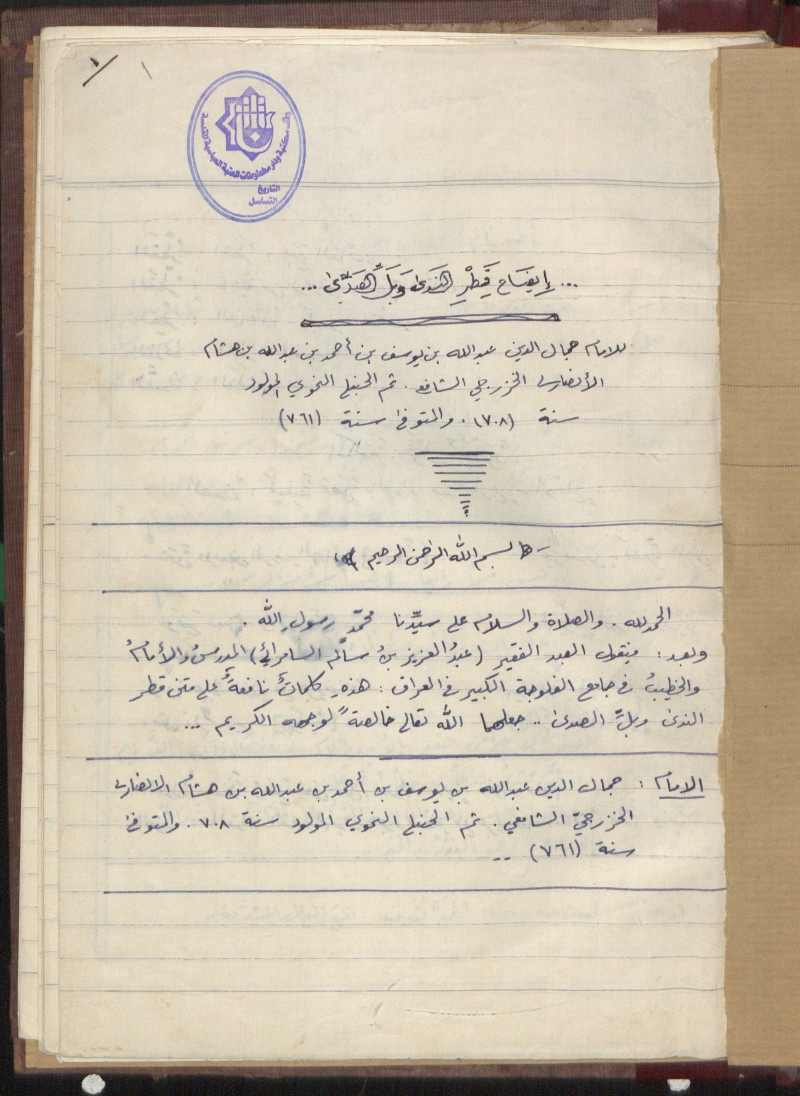 ١ ١
وقف مكتبة ودار مخطوطات العتبة العباسية المقدسة
التاريخ
التسلسل
... إيضاح قَطْرِ النَدَىٰ وَبَلِّ الصَدَىٰ ...
للامام جمال الدين عبدالله بن يوسف بن أحمد بن عبدالله بن هشام
الأنصاري الخزرجي الشافعي . ثم الحنبلي النحوي المولود
سنة (٧٠٨) . والمتوفىٰ سنة (٧٦١)
بسم الله الرحمن الرحيم
الحمد لله . والصلاة والسلام على سيِّدنا محمَّدٍ رسولِ الله .
وبعد : فيقول العبد الفقير (عبدُ العزيز بنُ سالم السامرائي) المدرسُ والأمامُ
والخطيبُ في جامع الفلوجة الكبير في العراق : هذهِ كلماتٌ نافعةٌ على متن قطر
الندىٰ وبلِّ الصدىٰ .. جعلها الله تعالى خالصةً لوجهه الكريم ...
الامام : جمال الدين عبدالله بن يوسف بن أحمد بن عبدالله بن هشام الانصاري
الخزرجيّ الشافعي . ثم الحنبلي النحوي المولود سنة ٧٠٨ . والمتوفىٰ
سنة (٧٦١) ..